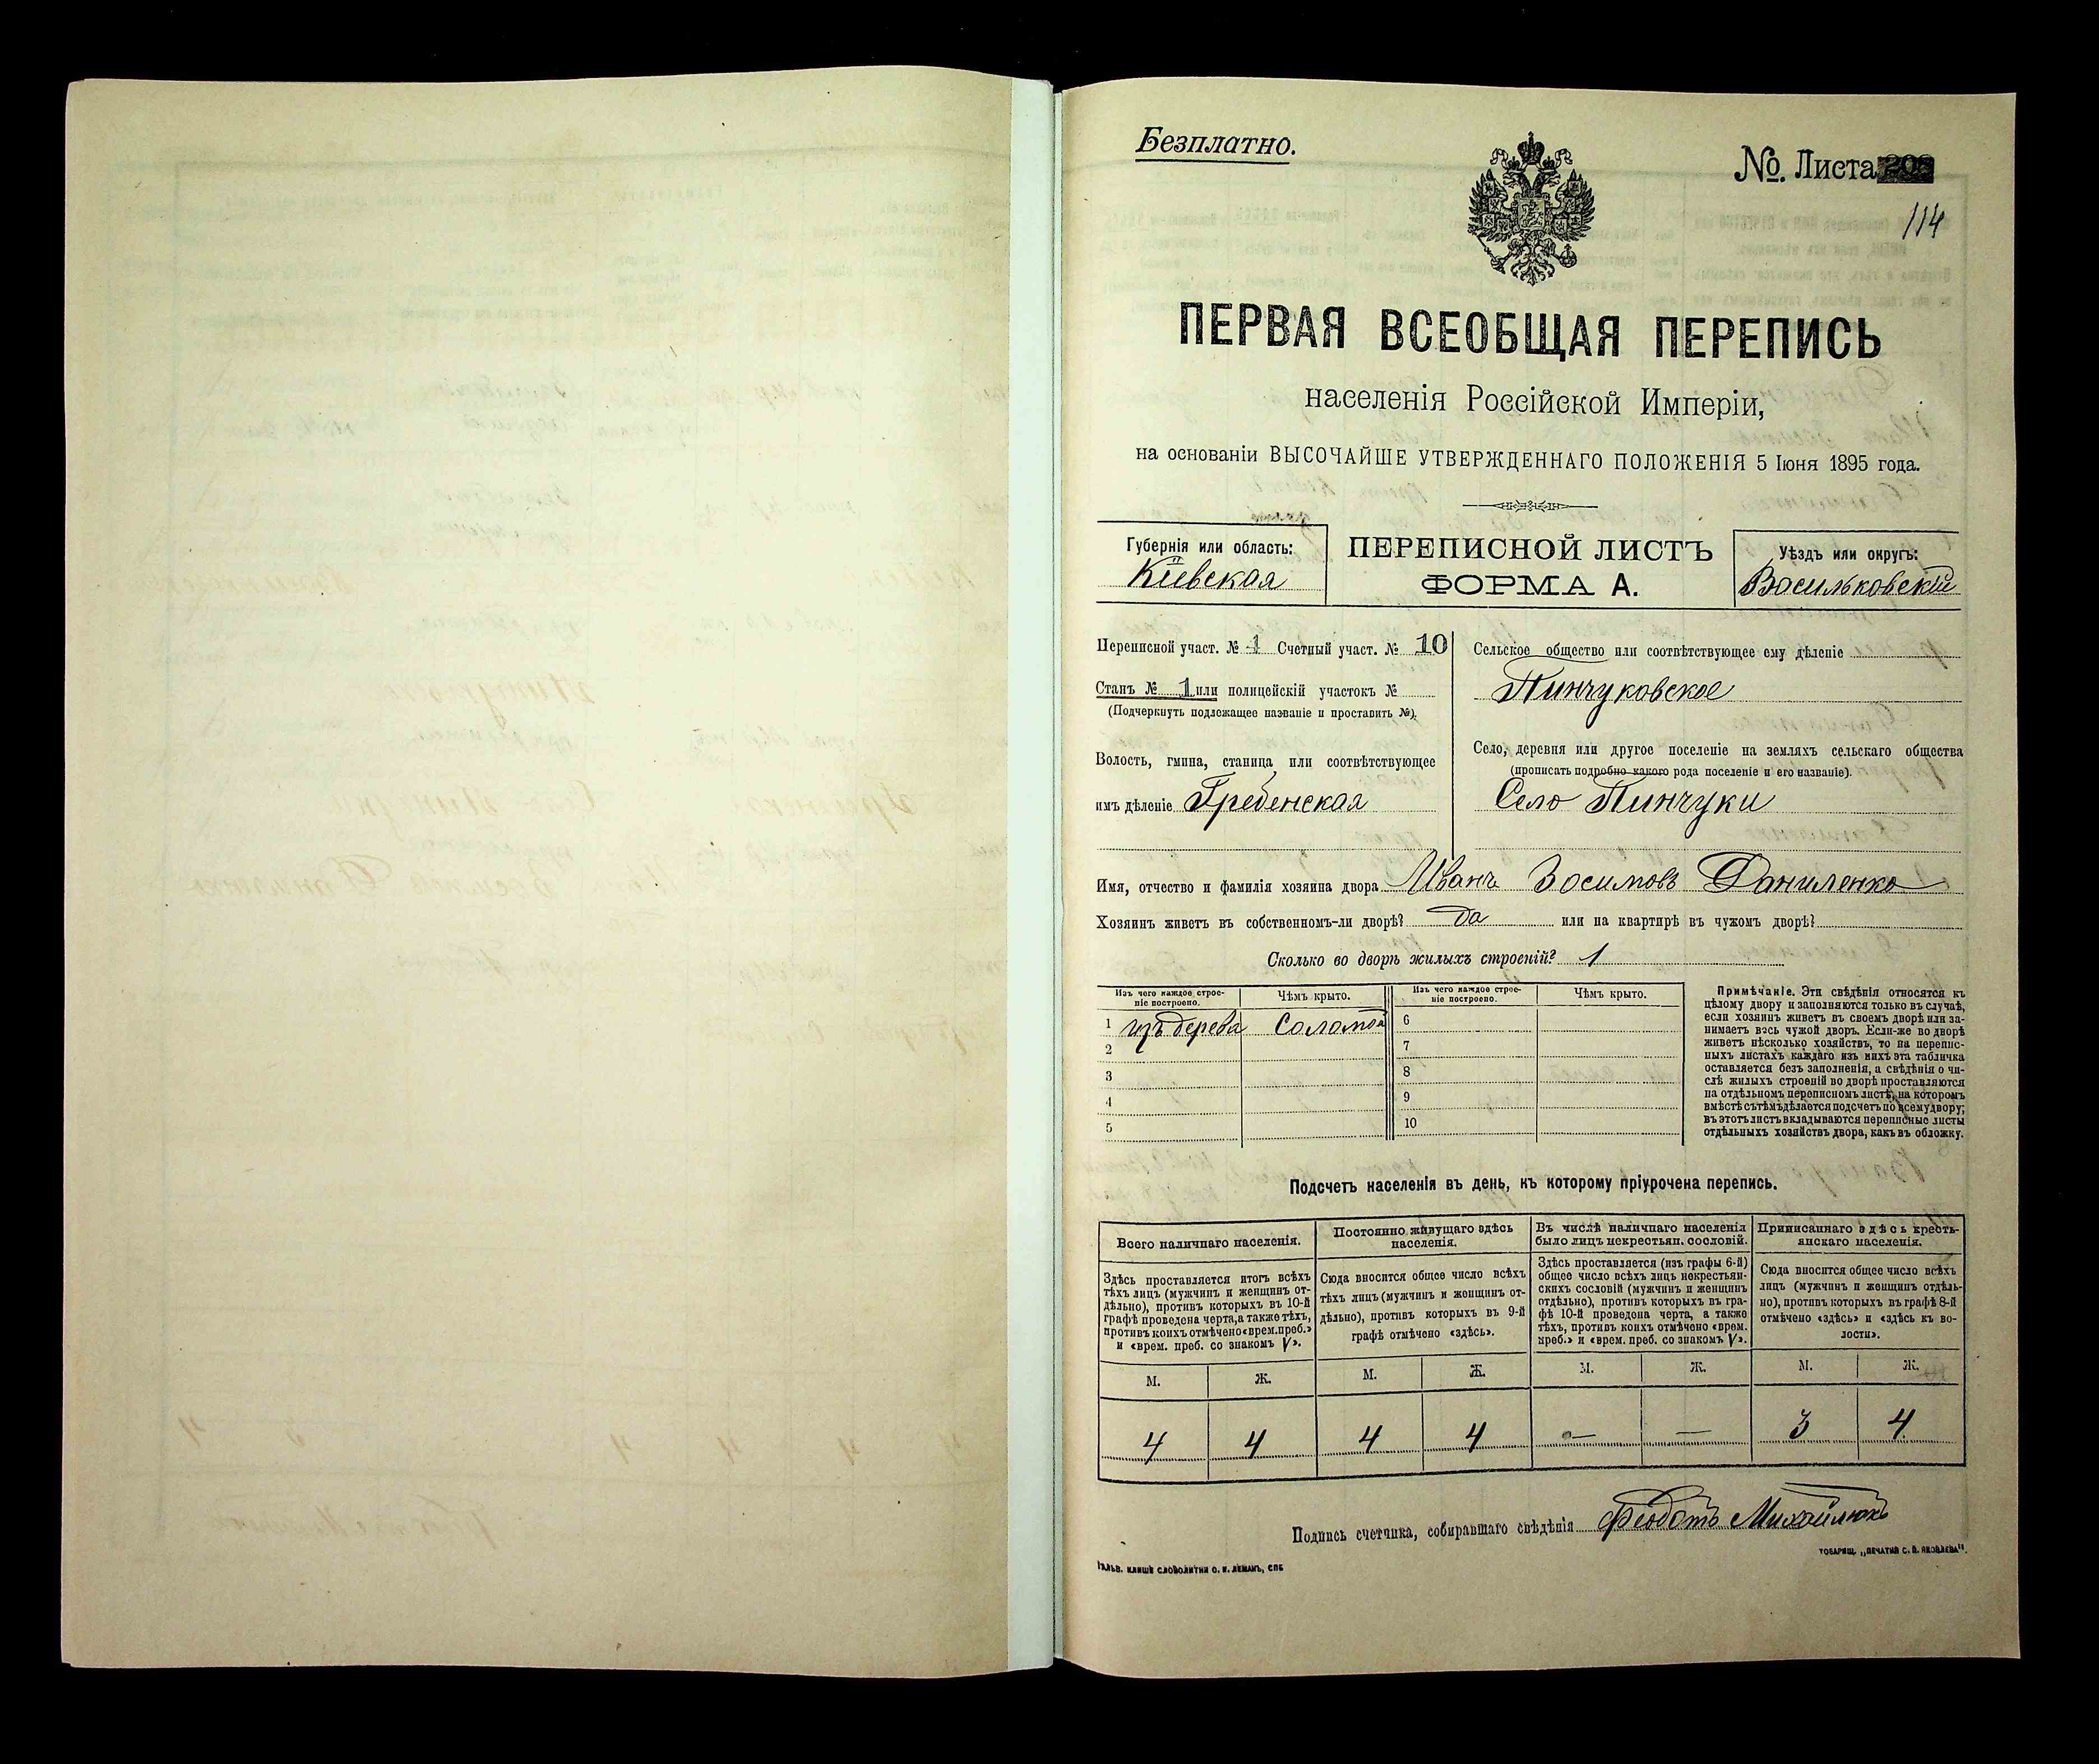 Безплатно.
№. Листа
114
ПЕРВАЯ ВСЕОБЩАЯ ПЕРЕПИСЬ
населенія Россійской Имперіи,
на основаніи ВЫСОЧАЙШЕ УТВЕРЖДЕННАГО ПОЛОЖЕНІЯ 5 Іюня 1895 года.
Губернія или область:
Кіевская
ПЕРЕПИСНОЙ ЛИСТЪ
ФОРМА А.
Уѣздъ или округъ:
Васильковскій
Переписной участ. № 1 Счетный участ. № 10
Станъ № 1 или полицейскій участокъ №
(Подчеркнуть подлежащее названіе и проставить №).
Волость, гмина, станица или соотвѣтствующее
имъ дѣленіе Гребенская
Сельское общество или соотвѣтствующее ему дѣленіе
Пинчуковское
Село, деревня или другое поселеніе на земляхъ сельскаго общества
(прописать подробно какого рода поселеніе и его названіе).
Село Пинчуки
Имя, отчество и фамилія хозяина двора Иванъ Зосимовъ Даниленко
Хозяинъ живетъ въ собственномъ-ли дворѣ? да или на квартирѣ въ чужомъ дворѣ?
Сколько во дворѣ жилыхъ строеній? 1
Изъ чего каждое строе-
ніе построено.
Чѣмъ крыто.
Изъ чего каждое строе-
ніе построено.
Чѣмъ крыто.
1 изъ дерева Соломой 6
2 7
3 8
4 9
5 10
Примѣчаніе. Эти свѣдѣнія относятся къ
цѣлому двору и заполняются только въ случаѣ,
если хозяинъ живетъ въ своемъ дворѣ или за-
нимаетъ весь чужой дворъ. Если-же во дворѣ
живетъ нѣсколько хозяйствъ, то на перепис-
ныхъ листахъ каждаго изъ нихъ эта табличка
оставляется безъ заполненія, а свѣдѣнія о чи-
слѣ жилыхъ строеній во дворѣ проставляются
на отдѣльномъ переписномъ листѣ, на которомъ
вмѣстѣ съ тѣмъ дѣлается подсчетъ по всему двору;
въ этотъ листъ вкладываются переписные листы
отдѣльныхъ хозяйствъ двора, какъ въ обложку.
Подсчетъ населенія въ день, къ которому пріурочена перепись.
Всего наличнаго населенія.
Постоянно живущаго здѣсь
населенія.
Въ числѣ наличнаго населенія
было лицъ некрестьян. сословій.
Приписаннаго здѣсь кресть-
янскаго населенія.
Здѣсь проставляется итогъ всѣхъ
тѣхъ лицъ (мужчинъ и женщинъ от-
дѣльно), противъ которыхъ въ 10-й
графѣ проведена черта, а также тѣхъ,
противъ коихъ отмѣчено «врем. преб.»
и «врем. преб. со знакомъ V».
Сюда вносится общее число всѣхъ
тѣхъ лицъ (мужчинъ и женщинъ от-
дѣльно), противъ которыхъ въ 9-й
графѣ отмѣчено «здѣсь».
Здѣсь проставляется (изъ графы 6-й)
общее число всѣхъ лицъ некрестьян-
скихъ сословій (мужчинъ и женщинъ
отдѣльно), противъ которыхъ въ гра-
фѣ 10-й проведена черта, а также
тѣхъ, противъ коихъ отмѣчено «врем.
преб.» и «врем. преб. со знакомъ V».
Сюда вносится общее число всѣхъ
лицъ (мужчинъ и женщинъ отдѣль-
но), противъ которыхъ въ графѣ 8-й
отмѣчено «здѣсь» и «здѣсь къ во-
лости».
М. Ж. М. Ж. М. Ж. М. Ж.
4 4 4 4 — — 3 4
Подпись счетчика, собиравшаго свѣдѣнія Феодотъ Михайлюкъ
ТОВАРИЩ. „ПЕЧАТНЯ С. П. ЯКОВЛЕВА".
ГАЛЬВ. КЛИШЕ СЛОВОЛИТНИ О. И. ЛЕМАНЪ, СПБ